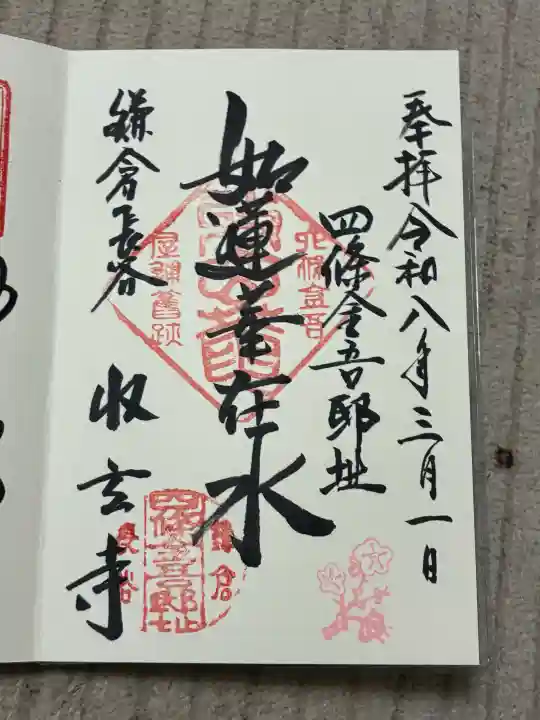 奉拝 令和八年三月一日
四條金吾邸址
如蓮華在水
鎌倉長谷
收玄寺
四條金吾
屋舗舊跡
四條金吾邸址
鎌倉
長谷